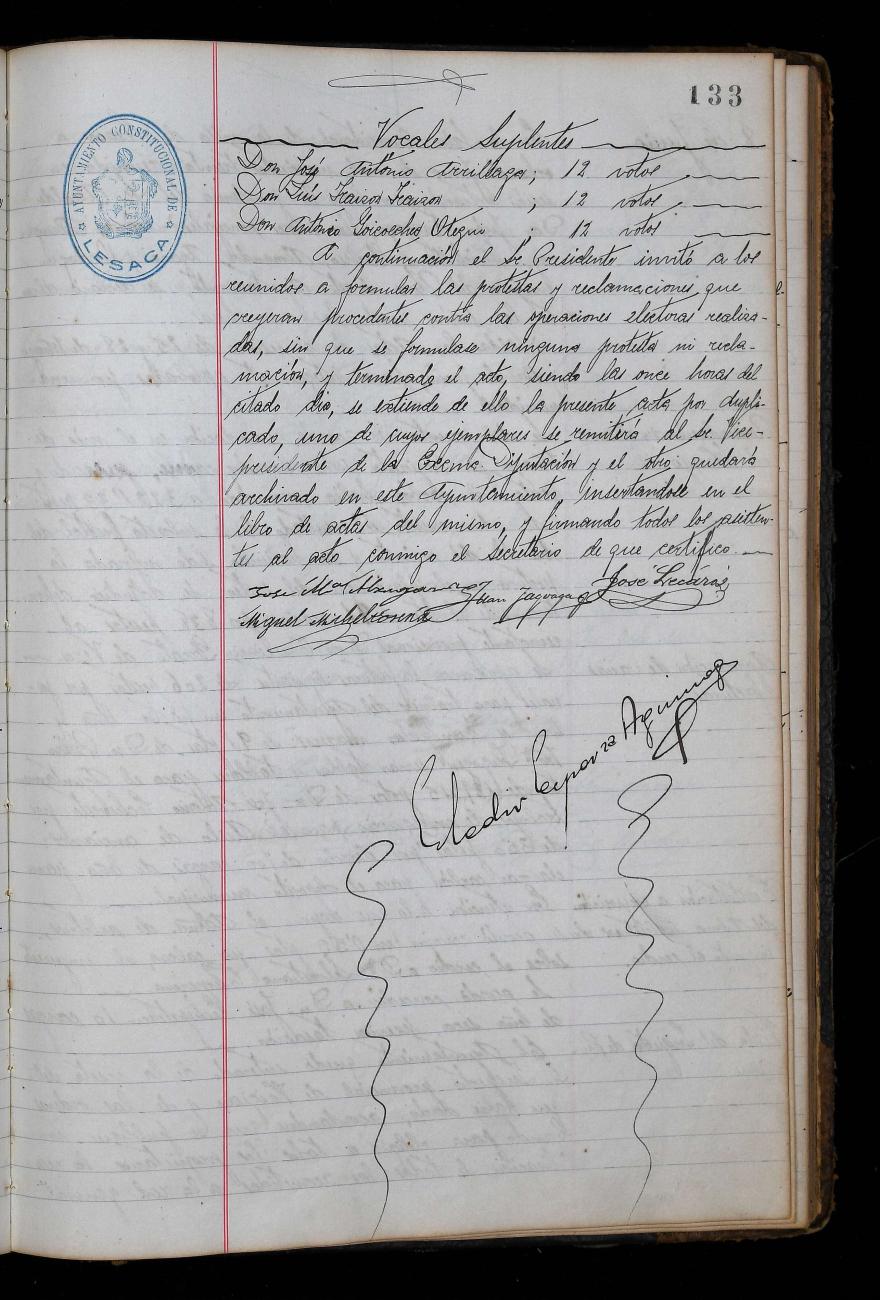 133
AYUNTAMIENTO CONSTITUCIONAL DE
LESACA
Vocales Suplentes
Don José Antonio Arrillaga; 12 votos
Don Luís Irazoz Irazoz ; 12 votos
Don Antonio Goicoechea Otegui ; 12 votos
A continuación el Sr. Presidente invitó a los
reunidos a formular las protestas y reclamaciones que
creyeran procedentes contra las operaciones electoras realiza-
das, sin que se formulase ninguna protesta ni recla-
mación, y terminado el acto, siendo las once horas del
citado dia, se extiende de ello la presente acta por dupli-
cado, uno de cuyos ejemplares se remitirá al Sr. Vice-
presidente de la Excma Diputación y el otro quedará
archivado en este Ayuntamiento, insertandose en el
libro de actas del mismo, y firmando todos los asisten-
tes al acto conmigo el secretario de que certifico.
Jose Mª Juan José
Miguel Michelxorena
Eladio Esparza Aguinaga